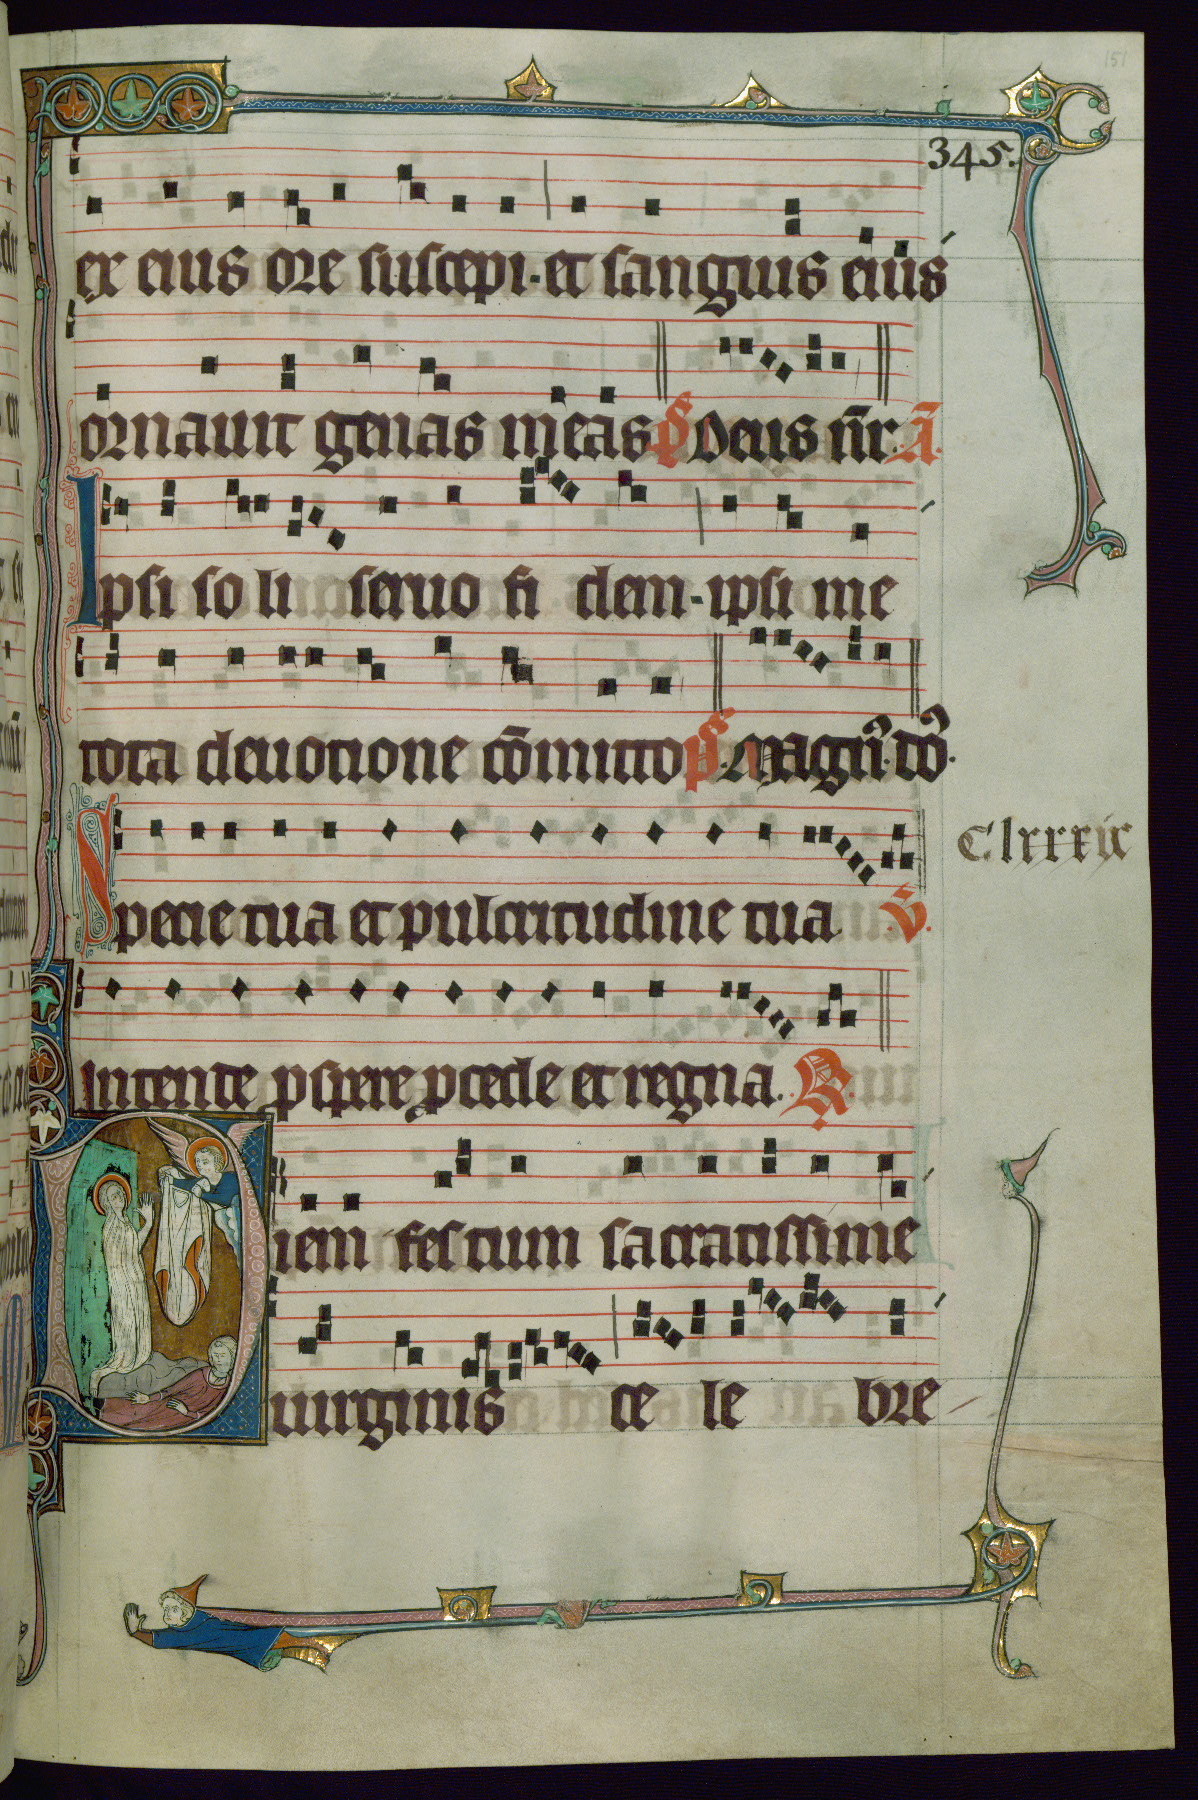 151
345.
ex eius ore suscepi. et sanguis eius
ornauit genas meas p̄s Deus n̄r. A̅.
Ipsi so li seruo fi dem. ipsi me
tota deuotione cōmitto p̄s. Magn̄. tō.
Specie tua et pulcritudine tua. V̄.
Clxxxix
Intente pspere pcede et regna. R.
Diem festum sacratissime
uirginis ce le bre